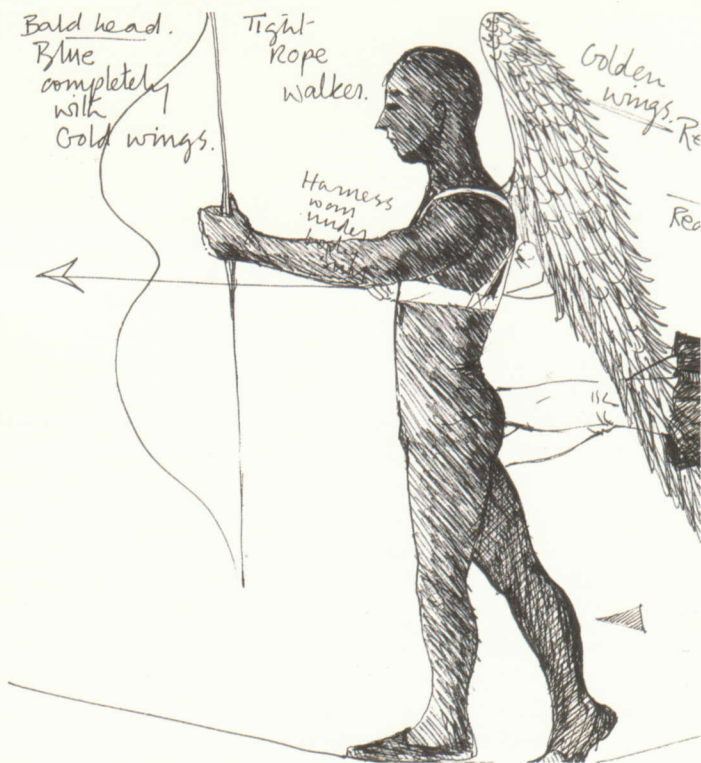 Bald head.
Blue
completely
with
Gold wings.
Tight-
Rope
walker.
Harness
worn
under
body
Golden
wings.
Re
Rec